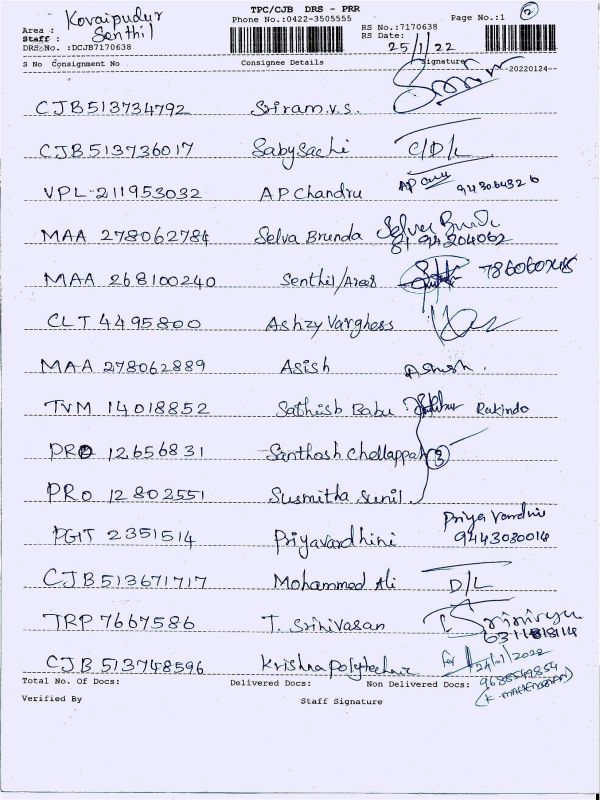 TPC/CJB DRS - PRR
Phone No.:0422-3505555
RS No.:7170638
RS Date:
25/1/22
Page No.:1
2
Area : Kovaipudur
Staff : Senthil
DRS No. :DCJB7170638
S No Consignment No Consignee Details Signature --20220124--
CJB513734792 Sriram.v.s.
CJB513736017 Sabysachi C/D/L
VPL-211953032 AP Chandru AP
MAA 278062784 Selva Brunda Selva Brunda
MAA 268100240 Senthil/Area
CLT 4495800 Ashzy Varghess
MAA 278062889 Asish Ashish.
TVM 14018852 Sathish Babu Rakindo
PRO 12656831 Santhosh Chellappah 3
PRO 12802551 Susmitha Sunil
PGIT 2351514 Priyavardhini Priya Vardhini
9443030014
CJB513671717 Mohammed Ali D/L
TRP 7667586 T. Srinivasan
CJB 513748596 Krishna Polytechnic For 24/01/2022
9688549854
(K. MAHENDRAN)
Total No. Of Docs: Delivered Docs: Non Delivered Docs:
Verified By Staff Signature